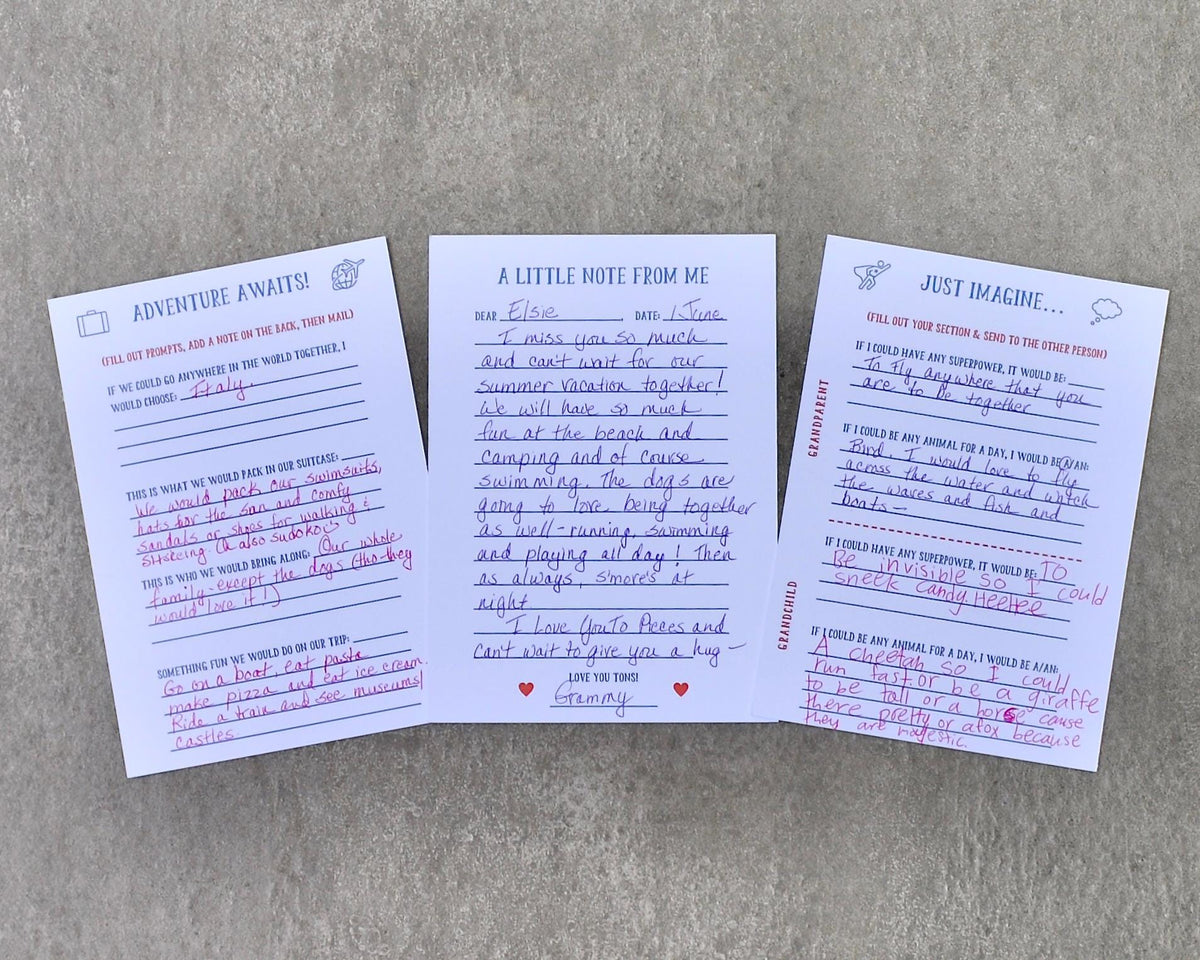 ADVENTURE AWAITS!
(FILL OUT PROMPTS, ADD A NOTE ON THE BACK, THEN MAIL)
IF WE COULD GO ANYWHERE IN THE WORLD TOGETHER, I
WOULD CHOOSE: Italy.
THIS IS WHAT WE WOULD PACK IN OUR SUITCASE:
We would pack our swimsuits,
hats for the sun and comfy
sandals or shoes for walking &
siteseeing. (& also sudoko
THIS IS WHO WE WOULD BRING ALONG: Our whole
family-except the dogs (tho they
would love it!)
SOMETHING FUN WE WOULD DO ON OUR TRIP:
Go on a boat, eat pasta
make pizza and eat ice cream.
Ride a train and see museums/
castles.
A LITTLE NOTE FROM ME
DEAR Elsie DATE: 1 June
I miss you so much
and can't wait for our
summer vacation together!
We will have so much
fun at the beach and
camping and of course
swimming. The dogs are
going to love being together
as well-running, swimming
and playing all day! Then
as always, s'more's at
night
I Love You To Pieces and
Can't wait to give you a hug -
LOVE YOU TONS!
Grammy
JUST IMAGINE...
(FILL OUT YOUR SECTION & SEND TO THE OTHER PERSON)
GRANDPARENT
IF I COULD HAVE ANY SUPERPOWER, IT WOULD BE:
To fly anywhere that you
are to be together
IF I COULD BE ANY ANIMAL FOR A DAY, I WOULD BE A/AN:
Bird. I would love to fly
across the water and watch
the waves and fish and
boats -
GRANDCHILD
IF I COULD HAVE ANY SUPERPOWER, IT WOULD BE: TO
Be invisible so I could
sneek candy. Heehee
IF I COULD BE ANY ANIMAL FOR A DAY, I WOULD BE A/AN:
A cheetah so I could
run fast or be a giraffe
to be tall or a horse cause
there pretty or a fox because
they are majestic.